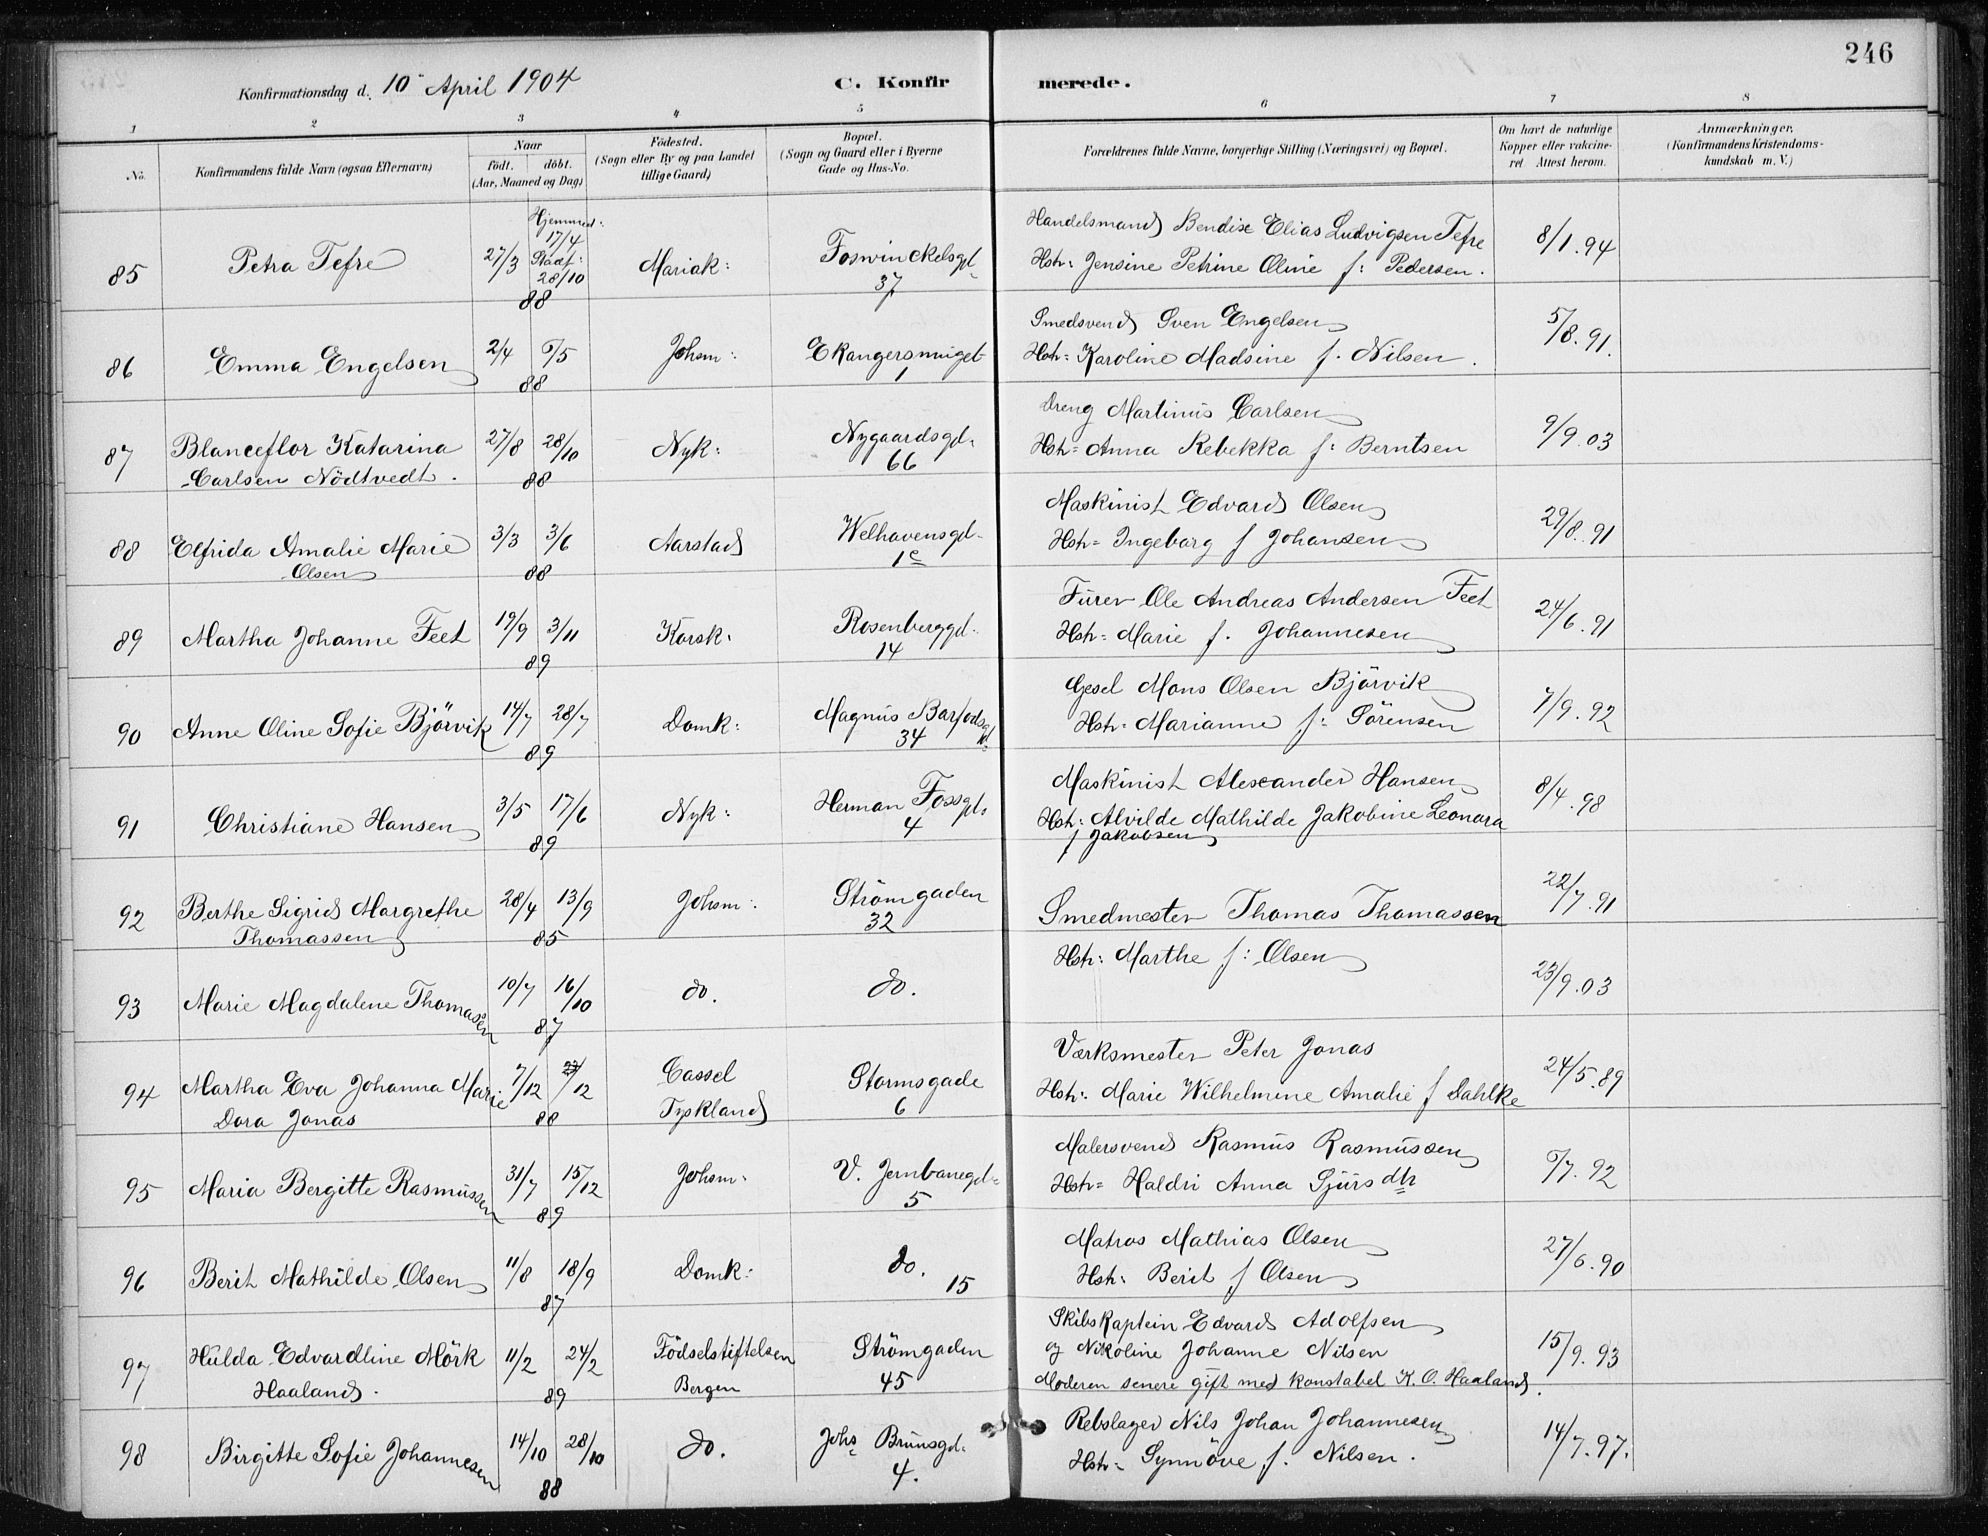 246
Konfirmationsdag d. 10 April 1904 C. Konfirmerede.
1 2 3 4 5 6 7 8
No. Konfirmandens fulde Navn (ogsaa Efternavn) Naar født. døbt. (Aar, Maaned og Dag) Fødested. (Sogn eller By og paa Landet tillige Gaard) Bopæl. (Sogn og Gaard eller i Byerne Gade og Hus-No. Forældrenes fulde Navne, borgerlige Stilling (Næringsvei) og Bopæl. Om havt de naturlige Kopper eller vakcineret. Attest herom. Anmærkninger. (Konfirmandens Kristendomskundskab m. V.)
85 Petra Tefre 27/3 Hjemmed: 17/4 Stadf: 28/10 88 Mariak: Foswinckelsgd. 37 Handelsmand Bendix Elias Ludvigsen Tefre 8/1.94
Hstr: Jensine Petrine Oline f: Pedersen.
86 Emma Engelsen 2/4 6/5 88 Johsm: Ekangersmuget 1 Smedsvend Sven Engelsen 5/8.91.
Hstr: Karoline Madsine f. Nilsen.
87 Blanceflor Katarina 27/8 28/10 88 Nyk: Nygaardsgd. 66 Dreng Martinus Carlsen 9/9.03
Carlsen Nödtvedt. Hstr: Anna Rebekka f: Berntsen
88 Elfrida Amalie Marie 3/3 3/6 88 Aarstad Welhavensgd. 1c Maskinist Edvard Olsen 29/8.91
Olsen Hstr: Ingeborg f Johansen
89 Martha Johanne Feet 19/9 3/11 89 Korsk. Rosenberggd. 14 Furer Ole Andreas Andersen Feet 24/6.91
Hstr: Marie f. Johannesen
90 Anne Oline Sofie Björvik 14/7 28/7 89 Domk: Magnus Barfodsgd. 34 Gesel Mons Olsen Björvik 7/9.92
Hstr: Marianne f: Sörensen
91 Christiane Hansen 3/5 17/6 89 Nyk: Herman Fossgd. 4 Maskinist Alexander Hansen 8/4.98
Hstr: Alvilde Mathilde Jakobine Leonora
f Jakobsen
92 Berthe Sigrid Margrethe 28/4 13/9 85 Johsm: Strömgaden 32 Smedmester Thomas Thomassen 22/7.91
Thomassen Hstr: Marthe f: Olsen
93 Marie Magdalene Thomassen 10/7 16/10 87 do. do. 23/9.03
94 Martha Eva Johanna Marie 7/12 27/12 88 Cassel Stormsgade 6 Værksmester Peter Jonas 24/5.89
Dora Jonas Tyskland Hstr: Marie Wilhelmine Amalie f Dahlke
95 Maria Bergitte Rasmussen 31/7 15/12 89 Johsm. V. Jernbanegd. 5 Malersvend Rasmus Rasmussen 6/7.92
Hstr: Haldri Anna Sjursdtr
96 Berit Mathilde Olsen 11/8 18/9 87 Domk: do. 15 Matros Mathias Olsen 27/6.90
Hstr: Berit f Olsen
97 Hulda Edvardline Mörk 11/2 24/2 89 Födselstiftelsen Strömgaden 45 Skibskaptein Edvard Adolfsen 15/9.93
Haaland. Bergen og Nikoline Johanne Nilsen
Moderen senere gift med konstabel K. O. Haaland.
98 Birgitte Sofie Johannesen 14/10 28/10 88 do. Johs Brunsgd. 4. Rebslager Nils Johan Johannesen 14/7.97.
Hstr: Synnöve f. Nilsen.